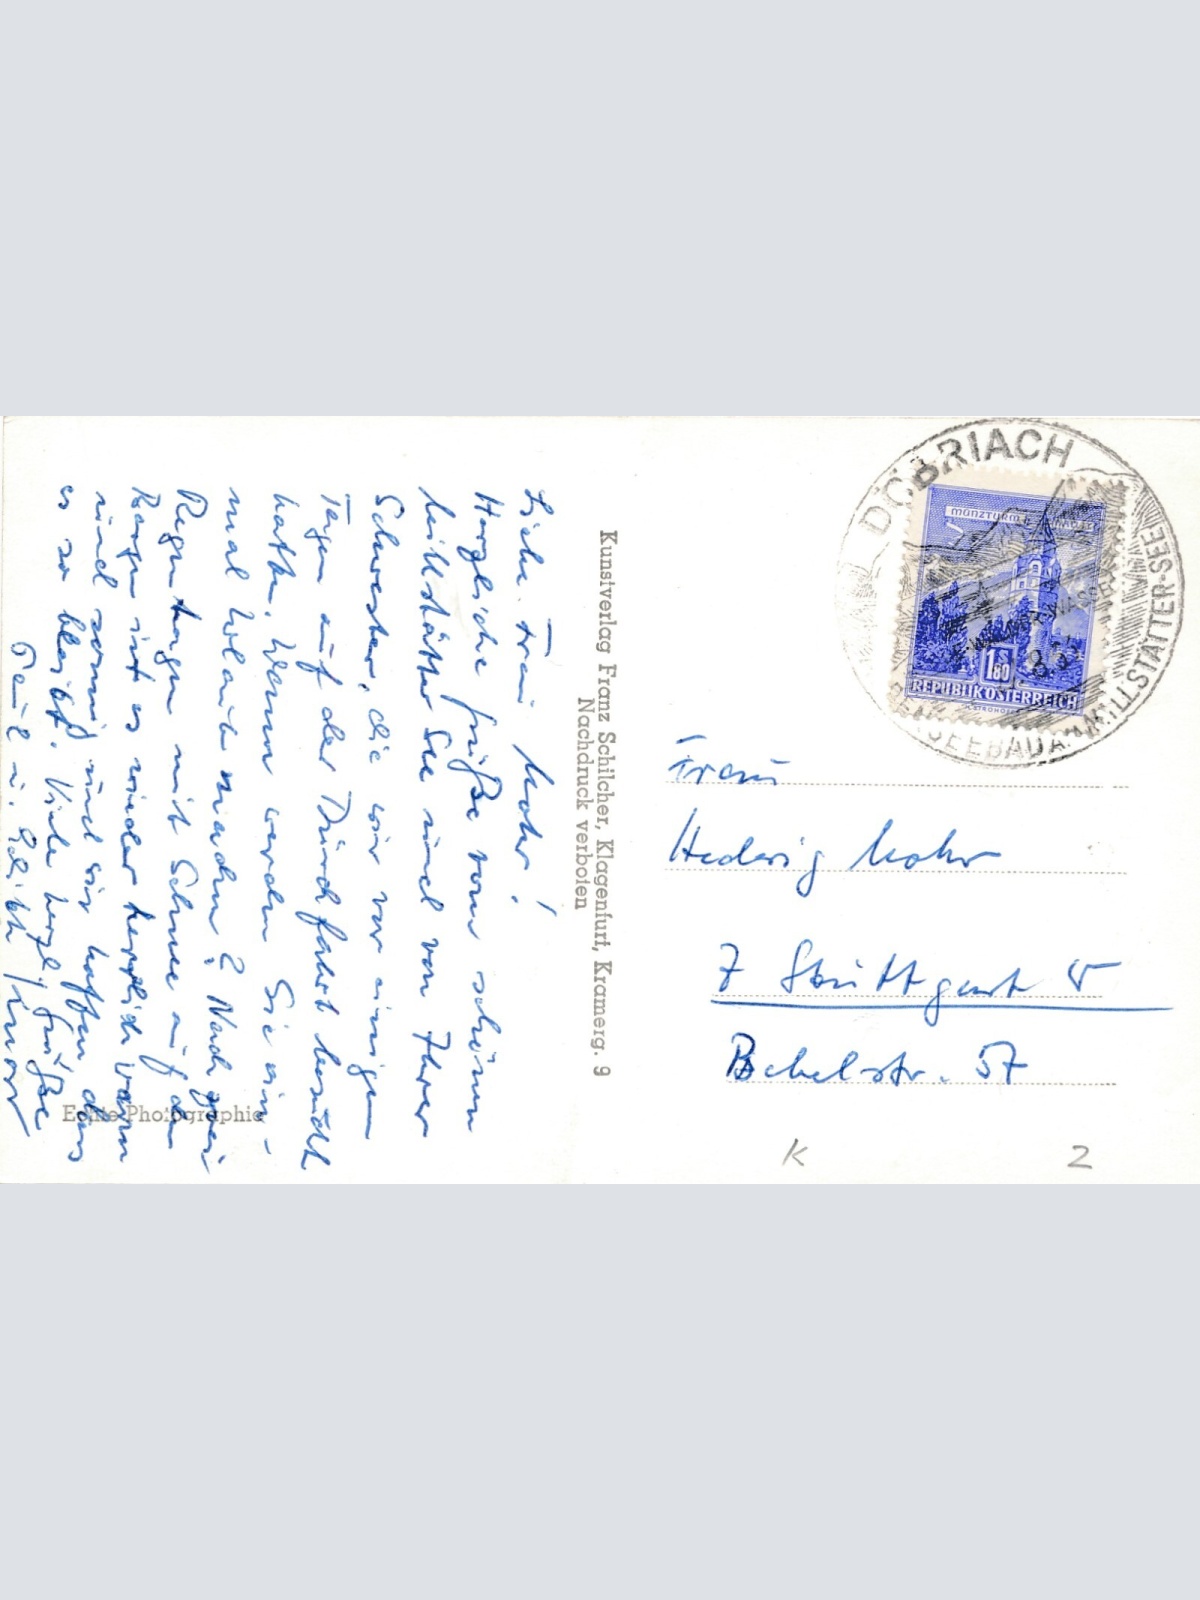 Liebe Frau Mohr!
Herzliche Grüße vom schönen
Millstätter See und von Ihrer
Schwester, die wir vor einigen
Tagen auf der Durchfahrt besucht
hatten. Wann werden Sie ein-
mal Urlaub machen? Nach zwei
Regentagen mit Schnee auf den
Bergen ist es wieder herrlich warm
und sonnig und wir hoffen, dass
es so bleibt. Viele herzl. Grüße
Kunstverlag Franz Schilcher, Klagenfurt, Kramerg. 9
Nachdruck verboten
Echte Photographie
DÖBRIACH
MILLSTÄTTER-SEE
MÜNZTURM
1.80
S
REPUBLIK ÖSTERREICH
Frau
Hedwig Mohr
7 Stuttgart
Bebelstr. 57
K 2